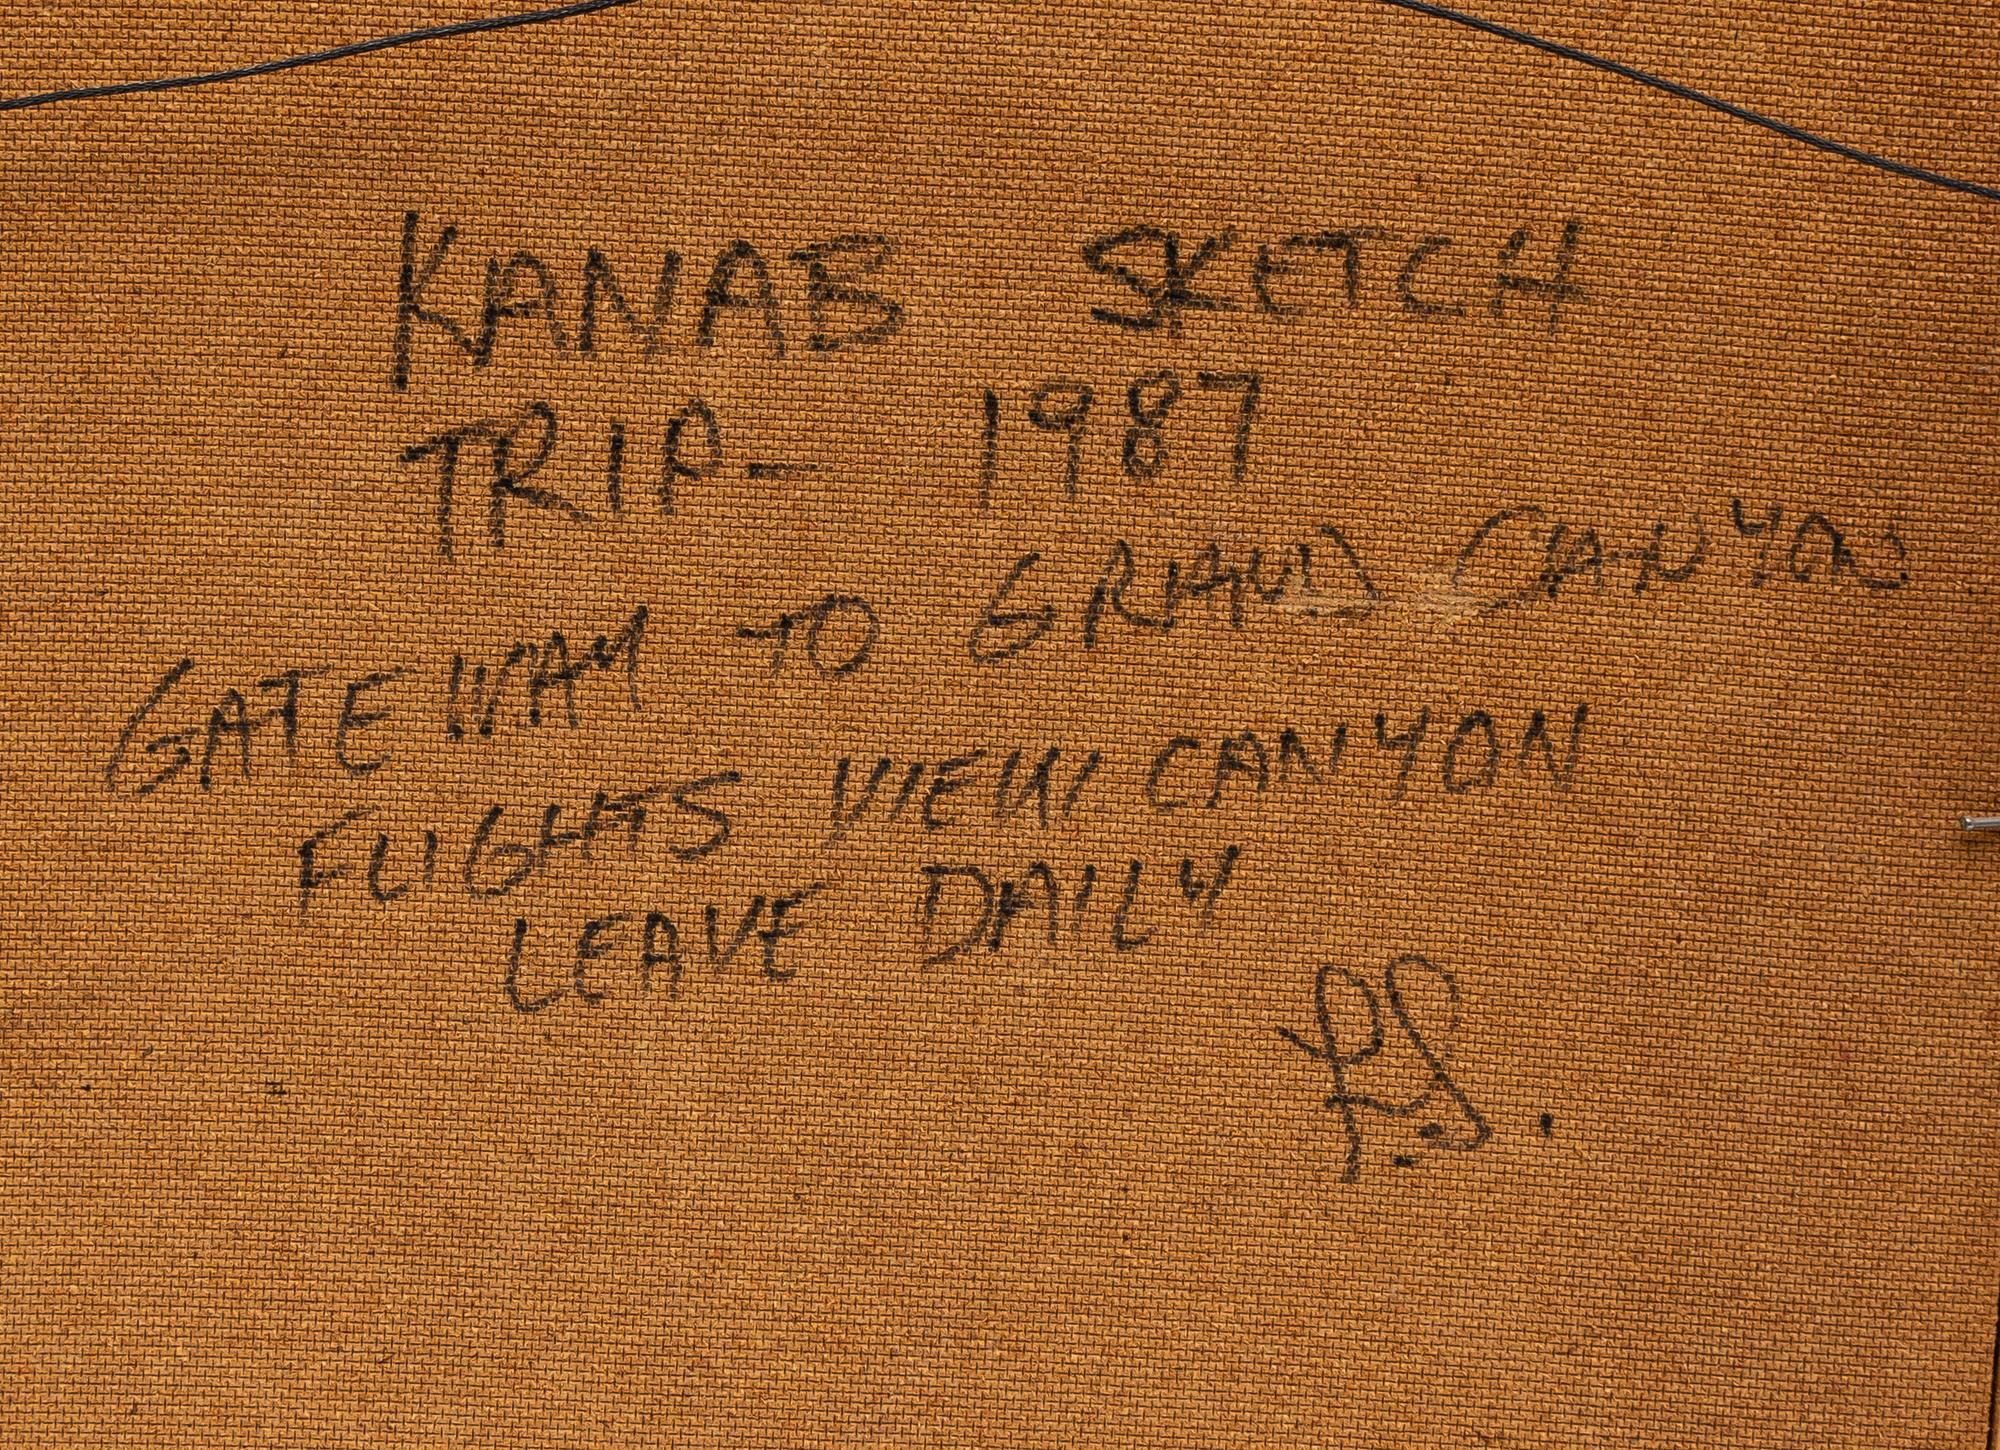 KANAB SKETCH
TRIP - 1987
GATEWAY TO GRAND CANYON
FLIGHTS VIEW CANYON
LEAVE DAILY